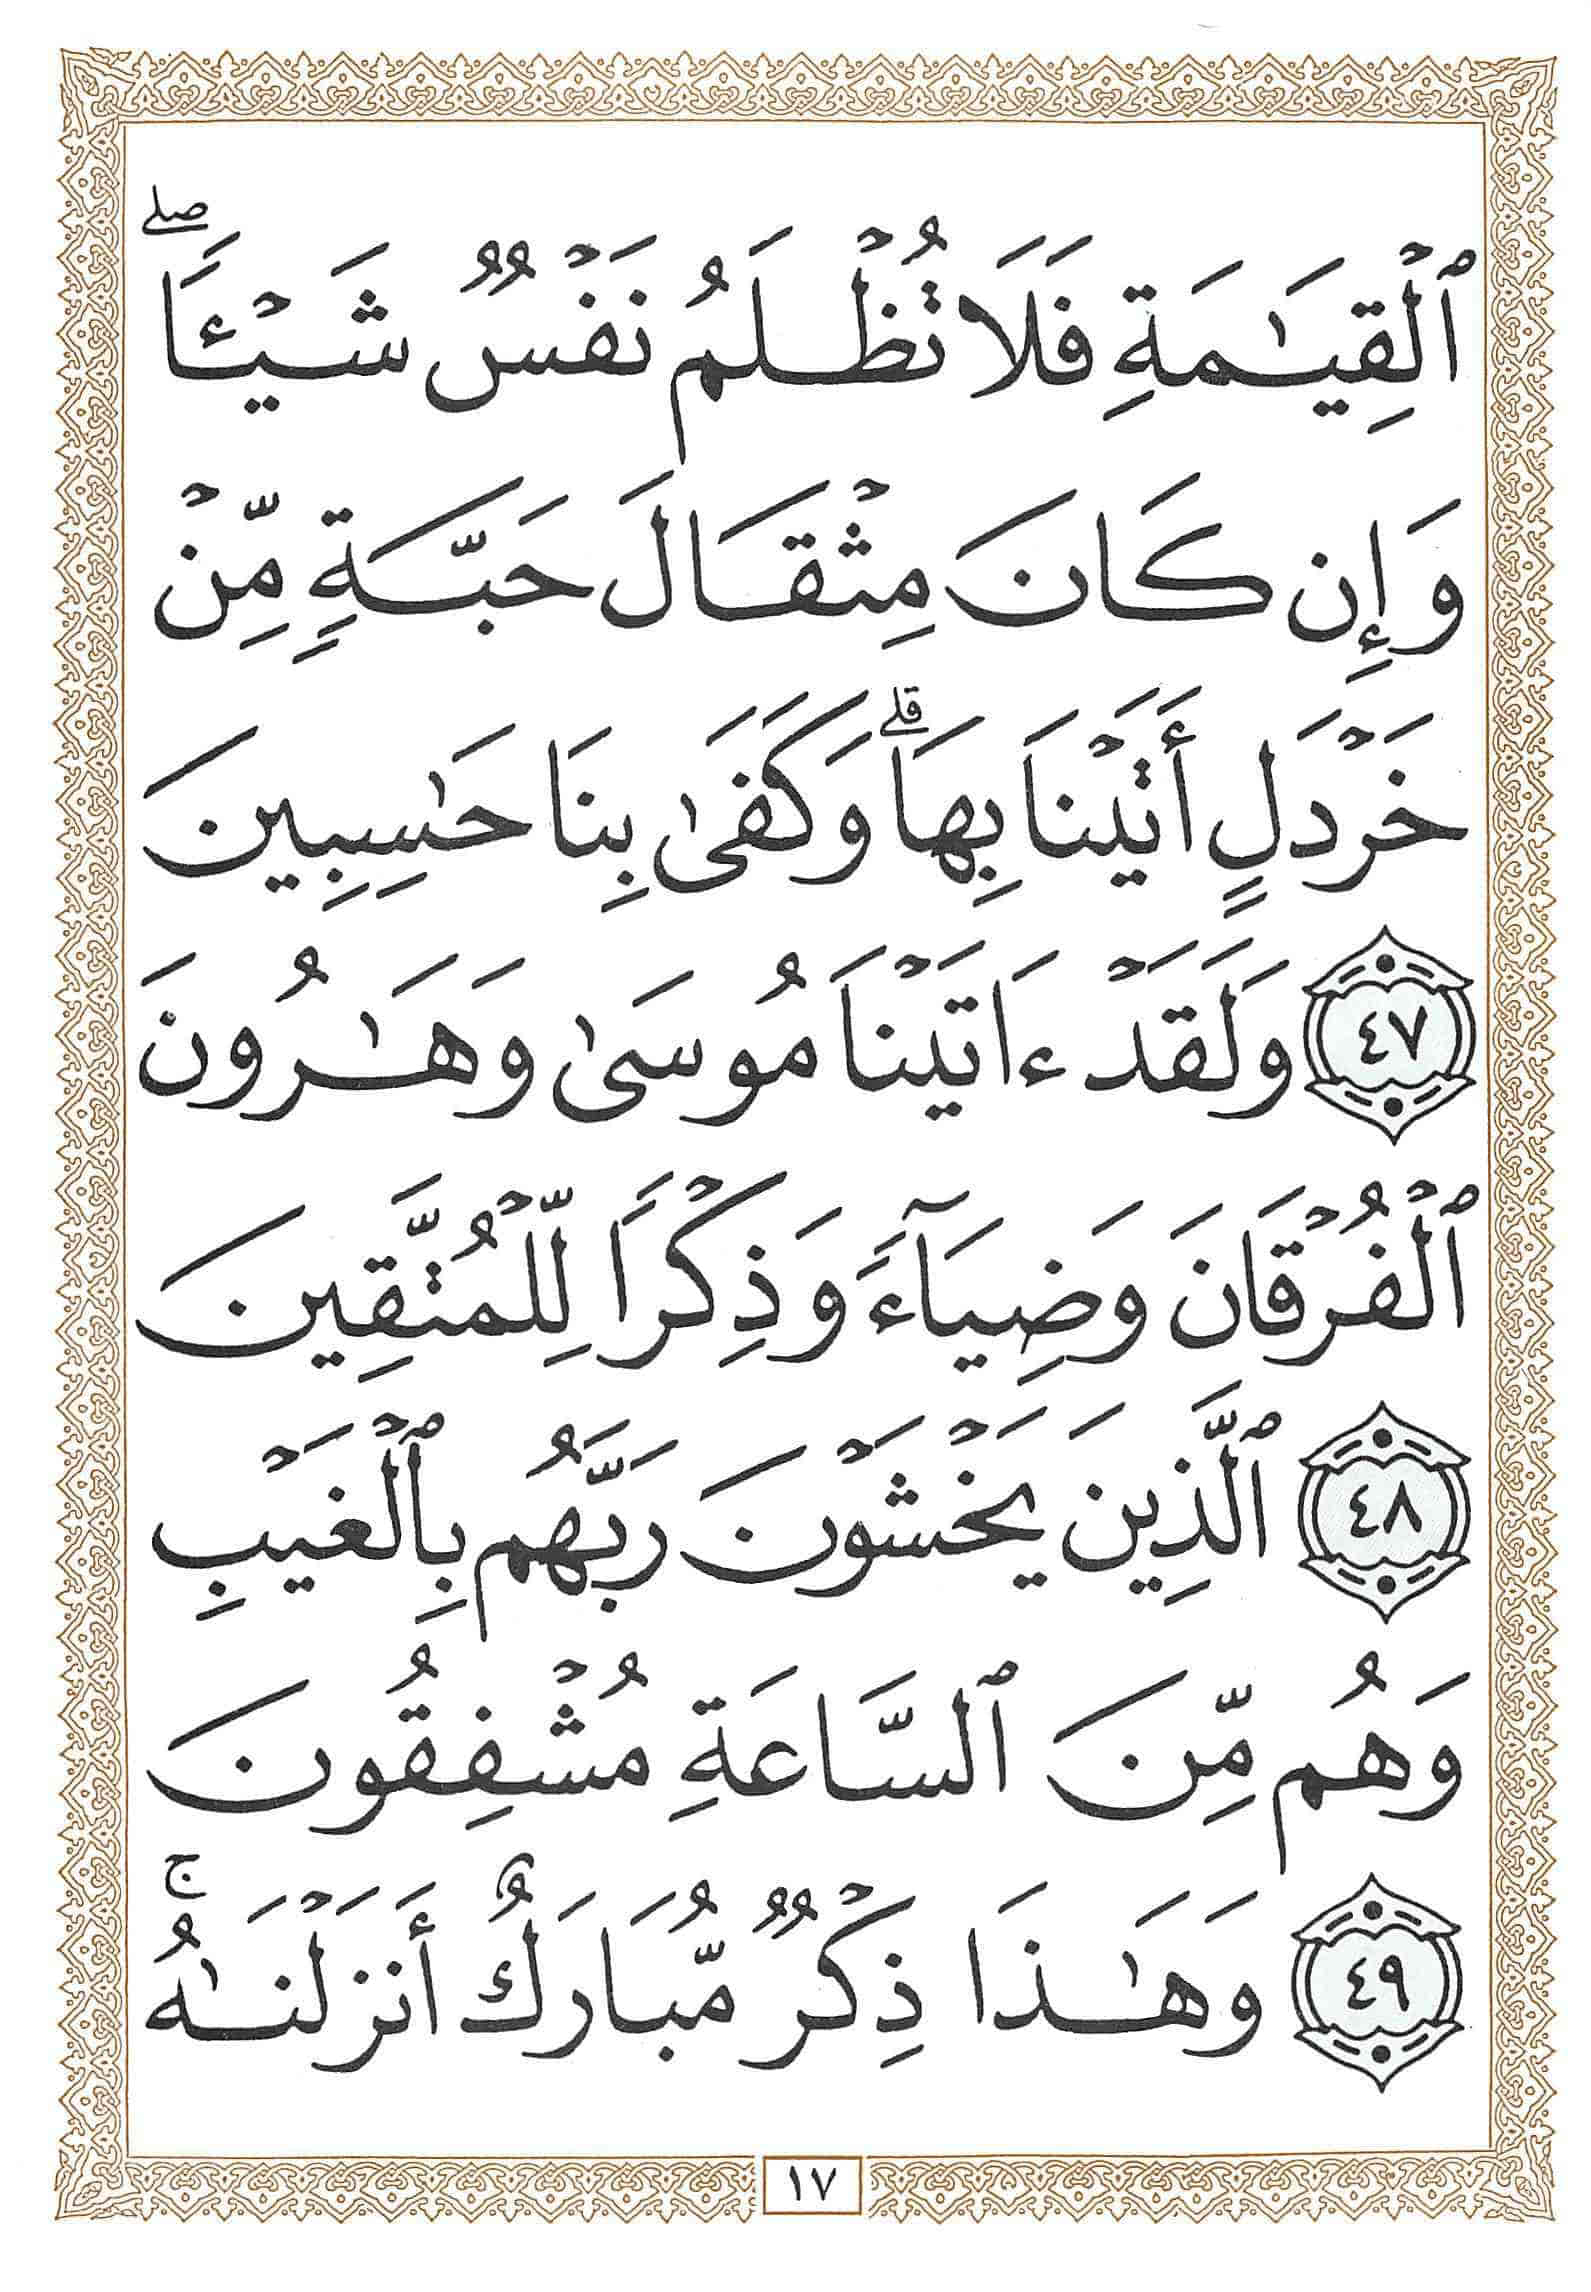 ٱلْقِيَٰمَةِ فَلَا تُظْلَمُ نَفْسٌ شَيْـًٔا ۖ
وَإِن كَانَ مِثْقَالَ حَبَّةٍ مِّنْ
خَرْدَلٍ أَتَيْنَا بِهَا ۗ وَكَفَىٰ بِنَا حَٰسِبِينَ
٤٧ وَلَقَدْ ءَاتَيْنَا مُوسَىٰ وَهَٰرُونَ
ٱلْفُرْقَانَ وَضِيَآءً وَذِكْرًا لِّلْمُتَّقِينَ
٤٨ ٱلَّذِينَ يَخْشَوْنَ رَبَّهُم بِٱلْغَيْبِ
وَهُم مِّنَ ٱلسَّاعَةِ مُشْفِقُونَ
٤٩ وَهَٰذَا ذِكْرٌ مُّبَارَكٌ أَنزَلْنَٰهُ ۚ
١٧